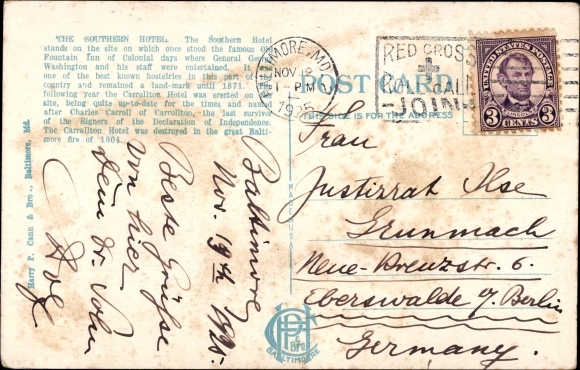 THE SOUTHERN HOTEL. The Southern Hotel
stands on the site on which once stood the famous Old
Fountain Inn of Colonial days where General George
Washington and his staff were entertained. It
one of the best known hostelries in this part of the
country and remained a land-mark until 1871.
following year the Carrollton Hotel was erected on the
site, being quite up-to-date for the times and named
after Charles Carroll of Carrollton, the last survivor
of the Signers of the Declaration of Independence.
The Carrollton Hotel was destroyed in the great Balti-
more fire of 1904.
Harry P. Cann & Bro., Baltimore, Md.
BALTIMORE, MD.
NOV 19
PM
1925
RED CROSS
ROLL CALL
JOIN
UNITED STATES POSTAGE
LINCOLN
3 CENTS 3
POST CARD
THIS SIDE IS FOR THE ADDRESS
MADE IN USA
Baltimore
Nov. 19th 1925.
Beste Grüße
von hier
Dein Dr. Sohn
Frau
Justizrath Ilse
Grunmach
Neue-Kreuzstr. 6.
Eberswalde b/ Berlin
Germany.
HPC
& Bro
BALTIMORE